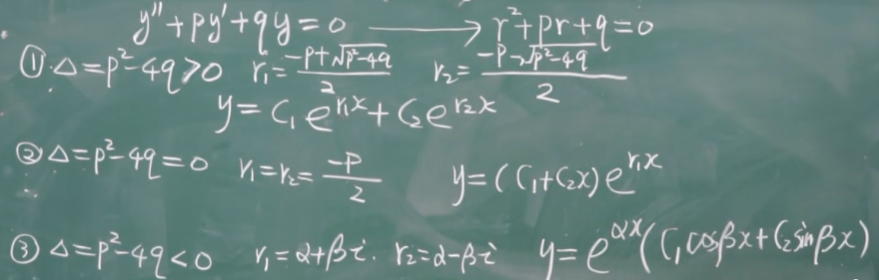 y''+py'+qy=0 ⟶ r²+pr+q=0
① Δ=p²-4q>0 r₁=(-p+√(p²-4q))/2 r₂=(-p-√(p²-4q))/2
y=C₁e^(r₁x)+C₂e^(r₂x)
② Δ=p²-4q=0 r₁=r₂=(-p)/2 y=(C₁+C₂x)e^(r₁x)
③ Δ=p²-4q<0 r₁=α+βi. r₂=α-βi y=e^(αx)(C₁cosβx+C₂sinβx)